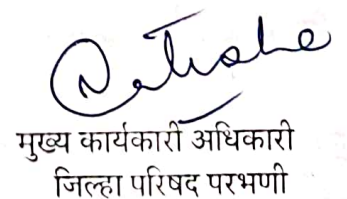 मुख्य कार्यकारी अधिकारी
जिल्हा परिषद परभणी